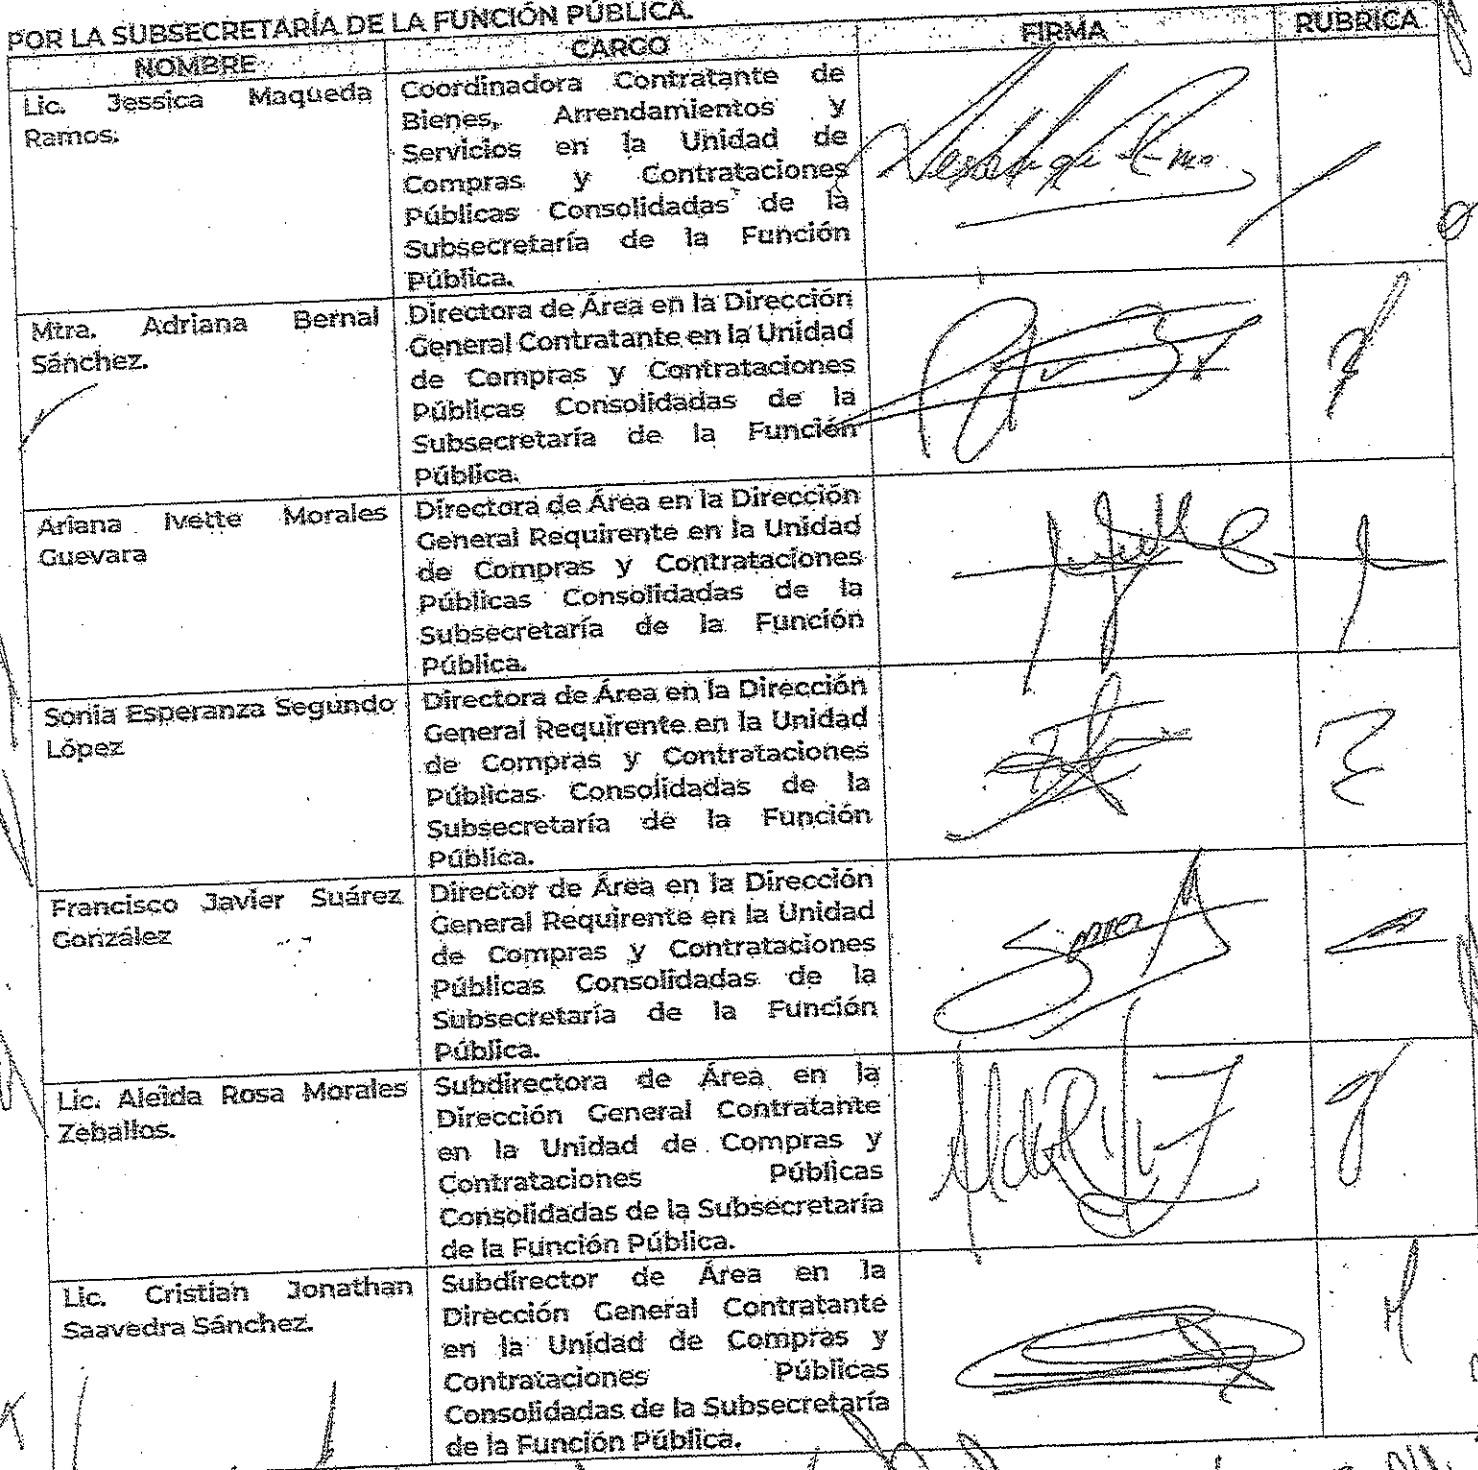 POR LA SUBSECRETARÍA DE LA FUNCIÓN PÚBLICA.
NOMBRE CARGO FIRMA RUBRICA
Lic. Jessica Maqueda
Ramos.
Coordinadora Contratante de
Bienes, Arrendamientos y
Servicios en la Unidad de
Compras y Contrataciones
Públicas Consolidadas de la
Subsecretaría de la Función
Pública.
Mtra. Adriana Bernal
Sánchez.
Directora de Área en la Dirección
General Contratante en la Unidad
de Compras y Contrataciones
Públicas Consolidadas de la
Subsecretaría de la Función
Pública.
Ariana Ivette Morales
Guevara
Directora de Área en la Dirección
General Requirente en la Unidad
de Compras y Contrataciones
Públicas Consolidadas de la
Subsecretaría de la Función
Pública.
Sonia Esperanza Segundo
López
Directora de Área en la Dirección
General Requirente en la Unidad
de Compras y Contrataciones
Públicas Consolidadas de la
Subsecretaría de la Función
Pública.
Francisco Javier Suárez
González
Director de Área en la Dirección
General Requirente en la Unidad
de Compras y Contrataciones
Públicas Consolidadas de la
Subsecretaría de la Función
Pública.
Lic. Aleida Rosa Morales
Zeballos.
Subdirectora de Área en la
Dirección General Contratante
en la Unidad de Compras y
Contrataciones Públicas
Consolidadas de la Subsecretaría
de la Función Pública.
Lic. Cristian Jonathan
Saavedra Sánchez.
Subdirector de Área en la
Dirección General Contratante
en la Unidad de Compras y
Contrataciones Públicas
Consolidadas de la Subsecretaría
de la Función Pública.